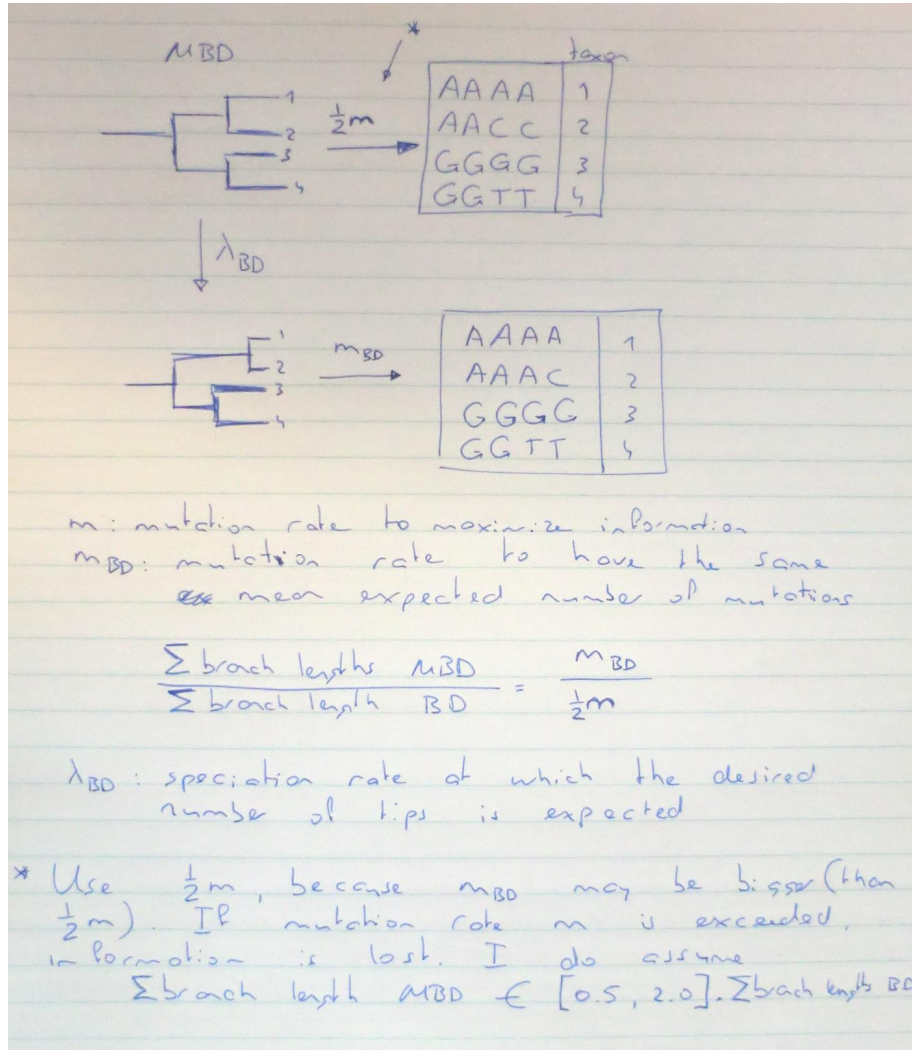 *
MBD
taxon
1
2
3
4
½m
AAAA 1
AACC 2
GGGG 3
GGTT 4
λBD
1
2
3
4
mBD
AAAA 1
AAAC 2
GGGG 3
GGTT 4
m: mutation rate to maximize information
mBD: mutation rate to have the same
mean expected number of mutations
Σ branch lengths MBD / Σ branch length BD = mBD / ½m
λBD: speciation rate at which the desired
number of tips is expected
* Use ½m, because mBD may be bigger (than
½m). If mutation rate m is exceeded,
information is lost. I do assume
Σ branch length MBD ∈ [0.5, 2.0]. Σ brach length BD